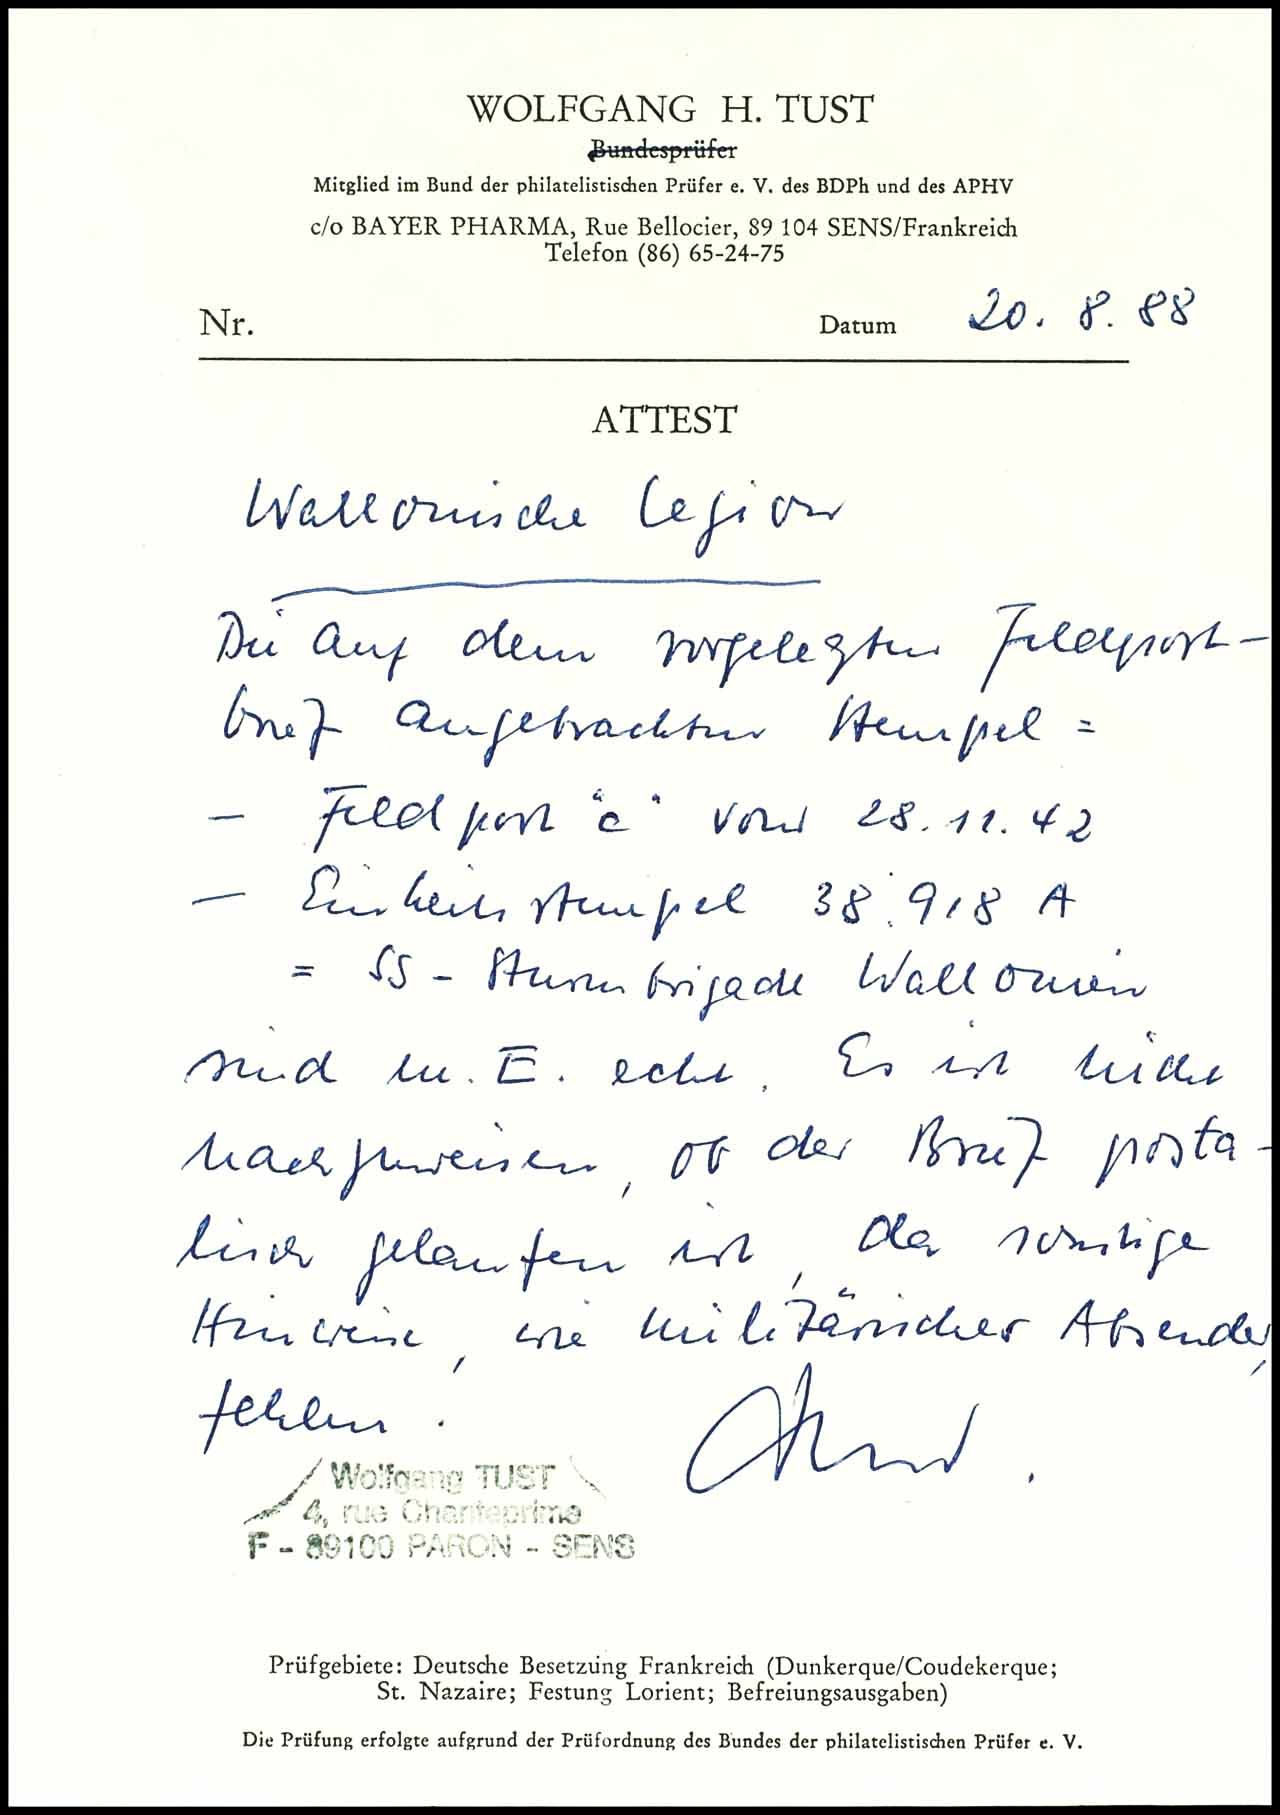 WOLFGANG H. TUST
Bundesprüfer
Mitglied im Bund der philatelistischen Prüfer e. V. des BDPh und des APHV
c/o BAYER PHARMA, Rue Bellocier, 89 104 SENS/Frankreich
Telefon (86) 65-24-75
Nr. Datum 20. 8. 88
ATTEST
Wallonische Legion
Die auf dem vorgelegten Feldpost-
brief angebrachten Stempel =
- Feldpost "c" vom 28.11.42
- Einheitsstempel 38.918 A
= SS-Sturmbrigade Wallonien
sind m. E. echt. Es ist nicht
nachzuweisen, ob der Brief posta-
lisch gelaufen ist, da sonstige
Hinweise, wie militärischer Absender,
fehlen.
Wolfgang TUST
4, rue Chanteprime
F - 89100 PARON - SENS
Prüfgebiete: Deutsche Besetzung Frankreich (Dunkerque/Coudekerque;
St. Nazaire; Festung Lorient; Befreiungsausgaben)
Die Prüfung erfolgte aufgrund der Prüfordnung des Bundes der philatelistischen Prüfer e. V.